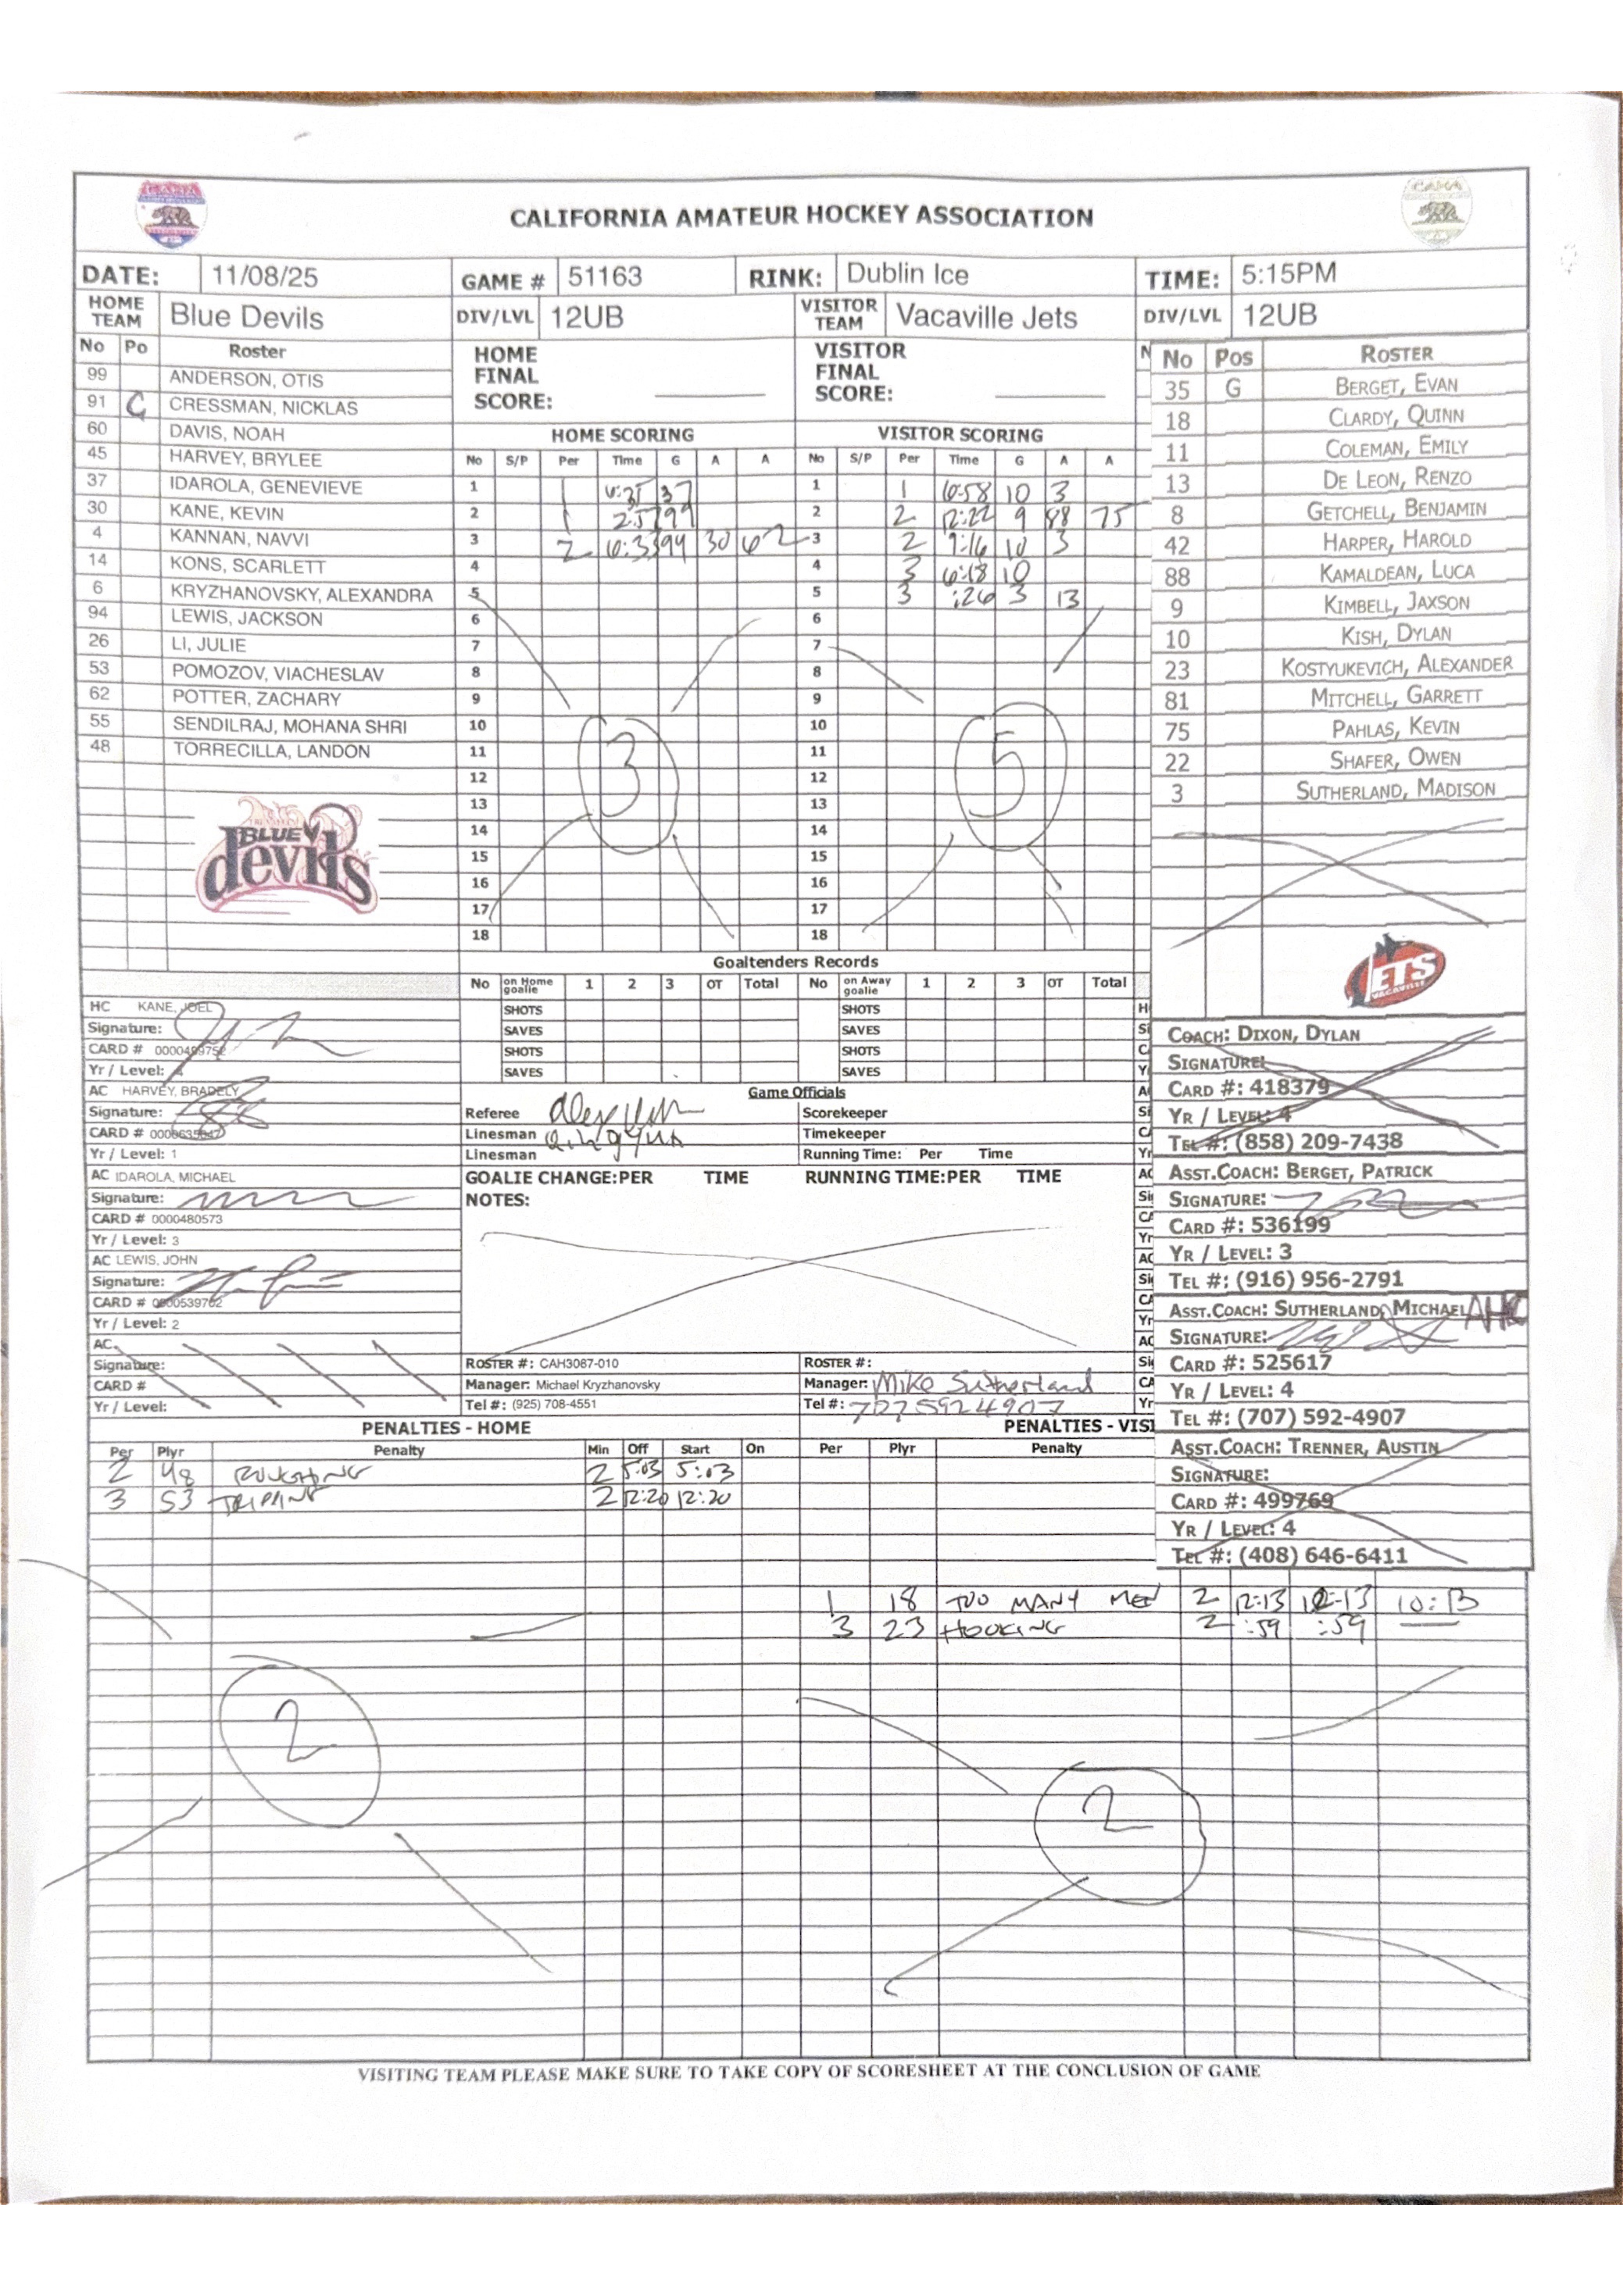 CALIFORNIA AMATEUR HOCKEY ASSOCIATION
DATE: 11/08/25 GAME # 51163 RINK: Dublin Ice TIME: 5:15PM
HOME TEAM Blue Devils DIV/LVL 12UB VISITOR TEAM Vacaville Jets DIV/LVL 12UB
No Po Roster
99 ANDERSON, OTIS
91 C CRESSMAN, NICKLAS
60 DAVIS, NOAH
45 HARVEY, BRYLEE
37 IDAROLA, GENEVIEVE
30 KANE, KEVIN
4 KANNAN, NAVVI
14 KONS, SCARLETT
6 KRYZHANOVSKY, ALEXANDRA
94 LEWIS, JACKSON
26 LI, JULIE
53 POMOZOV, VIACHESLAV
62 POTTER, ZACHARY
55 SENDILRAJ, MOHANA SHRI
48 TORRECILLA, LANDON
BLUE devils
HOME FINAL SCORE:
VISITOR FINAL SCORE:
HOME SCORING
No S/P Per Time G A A
1 1 37
2 1
3 2 30 62
4
5
6
7
8
9
10
11
12
13
14
15
16
17
18
3
VISITOR SCORING
No S/P Per Time G A A
1 1 6:58 10 3
2 2 12:22 9 88 75
3 2 9:16 10 3
4 3 6:18 10
5 3 :26 3 13
6
7
8
9
10
11
12
13
14
15
16
17
18
5
No Pos ROSTER
35 G BERGET, EVAN
18 CLARDY, QUINN
11 COLEMAN, EMILY
13 DE LEON, RENZO
8 GETCHELL, BENJAMIN
42 HARPER, HAROLD
88 KAMALDEAN, LUCA
9 KIMBELL, JAXSON
10 KISH, DYLAN
23 KOSTYUKEVICH, ALEXANDER
81 MITCHELL, GARRETT
75 PAHLAS, KEVIN
22 SHAFER, OWEN
3 SUTHERLAND, MADISON
JETS VACAVILLE
Goaltenders Records
No on Home goalie 1 2 3 OT Total No on Away goalie 1 2 3 OT Total
SHOTS SHOTS
SAVES SAVES
SHOTS SHOTS
SAVES SAVES
HC KANE, JOEL
Signature:
CARD #
Yr / Level:
AC HARVEY, BRADELY
Signature:
CARD #
Yr / Level: 1
AC IDAROLA, MICHAEL
Signature:
CARD # 0000480573
Yr / Level: 3
AC LEWIS, JOHN
Signature:
CARD #
Yr / Level: 2
AC
Signature:
CARD #
Yr / Level:
Game Officials
Referee Scorekeeper
Linesman Timekeeper
Linesman Running Time: Per Time
GOALIE CHANGE:PER TIME RUNNING TIME:PER TIME
NOTES:
ROSTER #: CAH3087-010 ROSTER #:
Manager: Michael Kryzhanovsky Manager: Mike Sutherland
Tel #: (925) 708-4551 Tel #: 7075924907
COACH: DIXON, DYLAN
SIGNATURE:
CARD #: 418379
YR / LEVEL: 4
TEL #: (858) 209-7438
ASST.COACH: BERGET, PATRICK
SIGNATURE:
CARD #: 536199
YR / LEVEL: 3
TEL #: (916) 956-2791
ASST.COACH: SUTHERLAND, MICHAEL
SIGNATURE:
CARD #: 525617
YR / LEVEL: 4
TEL #: (707) 592-4907
ASST.COACH: TRENNER, AUSTIN
SIGNATURE:
CARD #: 499769
YR / LEVEL: 4
TEL #: (408) 646-6411
PENALTIES - HOME
Per Plyr Penalty Min Off Start On
2 48 ROUGHING 2 5:03 5:03
3 53 TRIPPING 2 12:20 12:20
2
PENALTIES - VISI
Per Plyr Penalty
1 18 TOO MANY MEN 2 12:13 12:13 10:13
3 23 HOOKING 2 :59 :59
2
VISITING TEAM PLEASE MAKE SURE TO TAKE COPY OF SCORESHEET AT THE CONCLUSION OF GAME